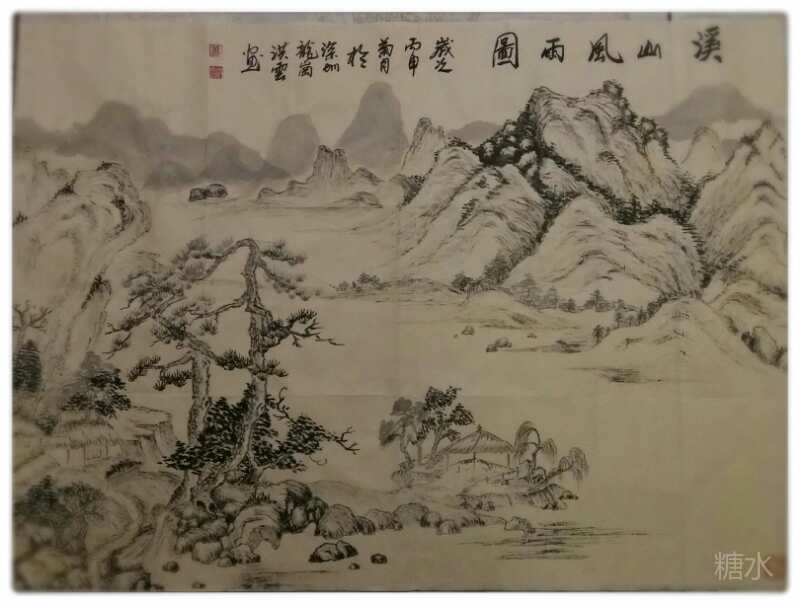 溪山風雨圖
歲次
丙申
菊月
於
深圳
龍崗
淡雲
画
糖水